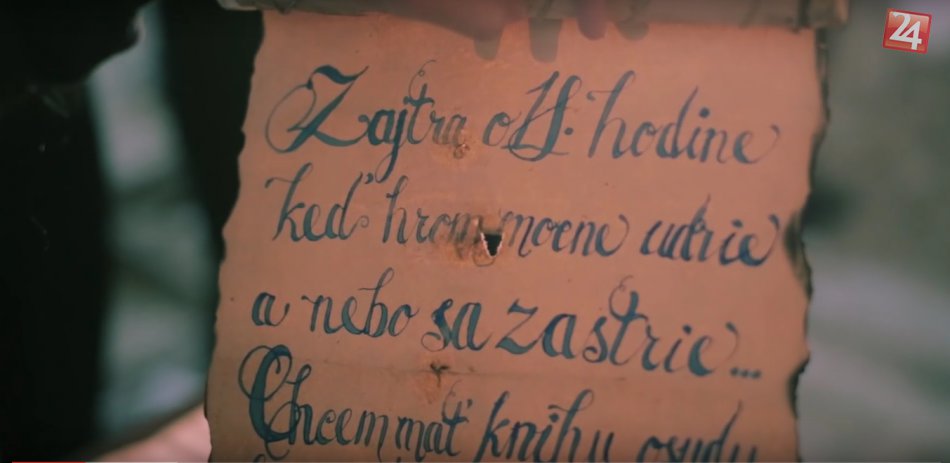 24
Zajtra o 11. hodine
keď hrom mocne udrie
a nebo sa zastrie...
Chcem mať knihu osudu